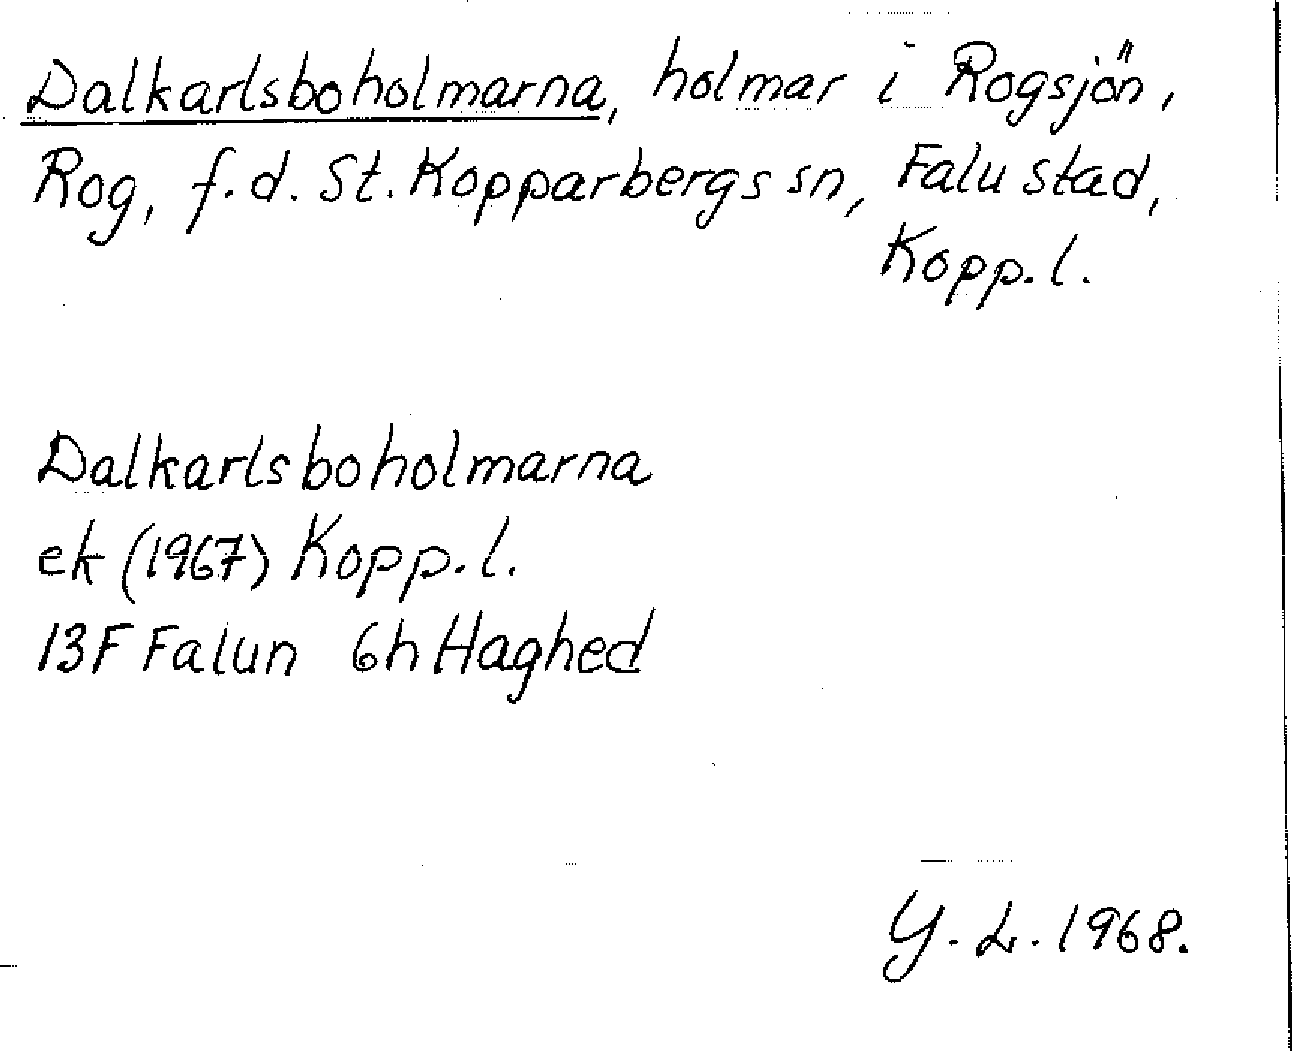 Dalkarlsboholmarna, holmar i Rogsjön,
Rog, f.d. St. Kopparbergs sn, Falu stad,
Kopp.l.
Dalkarlsboholmarna
ek (1967) Kopp.l.
13F Falun 6h Haghed
Y.L. 1968.